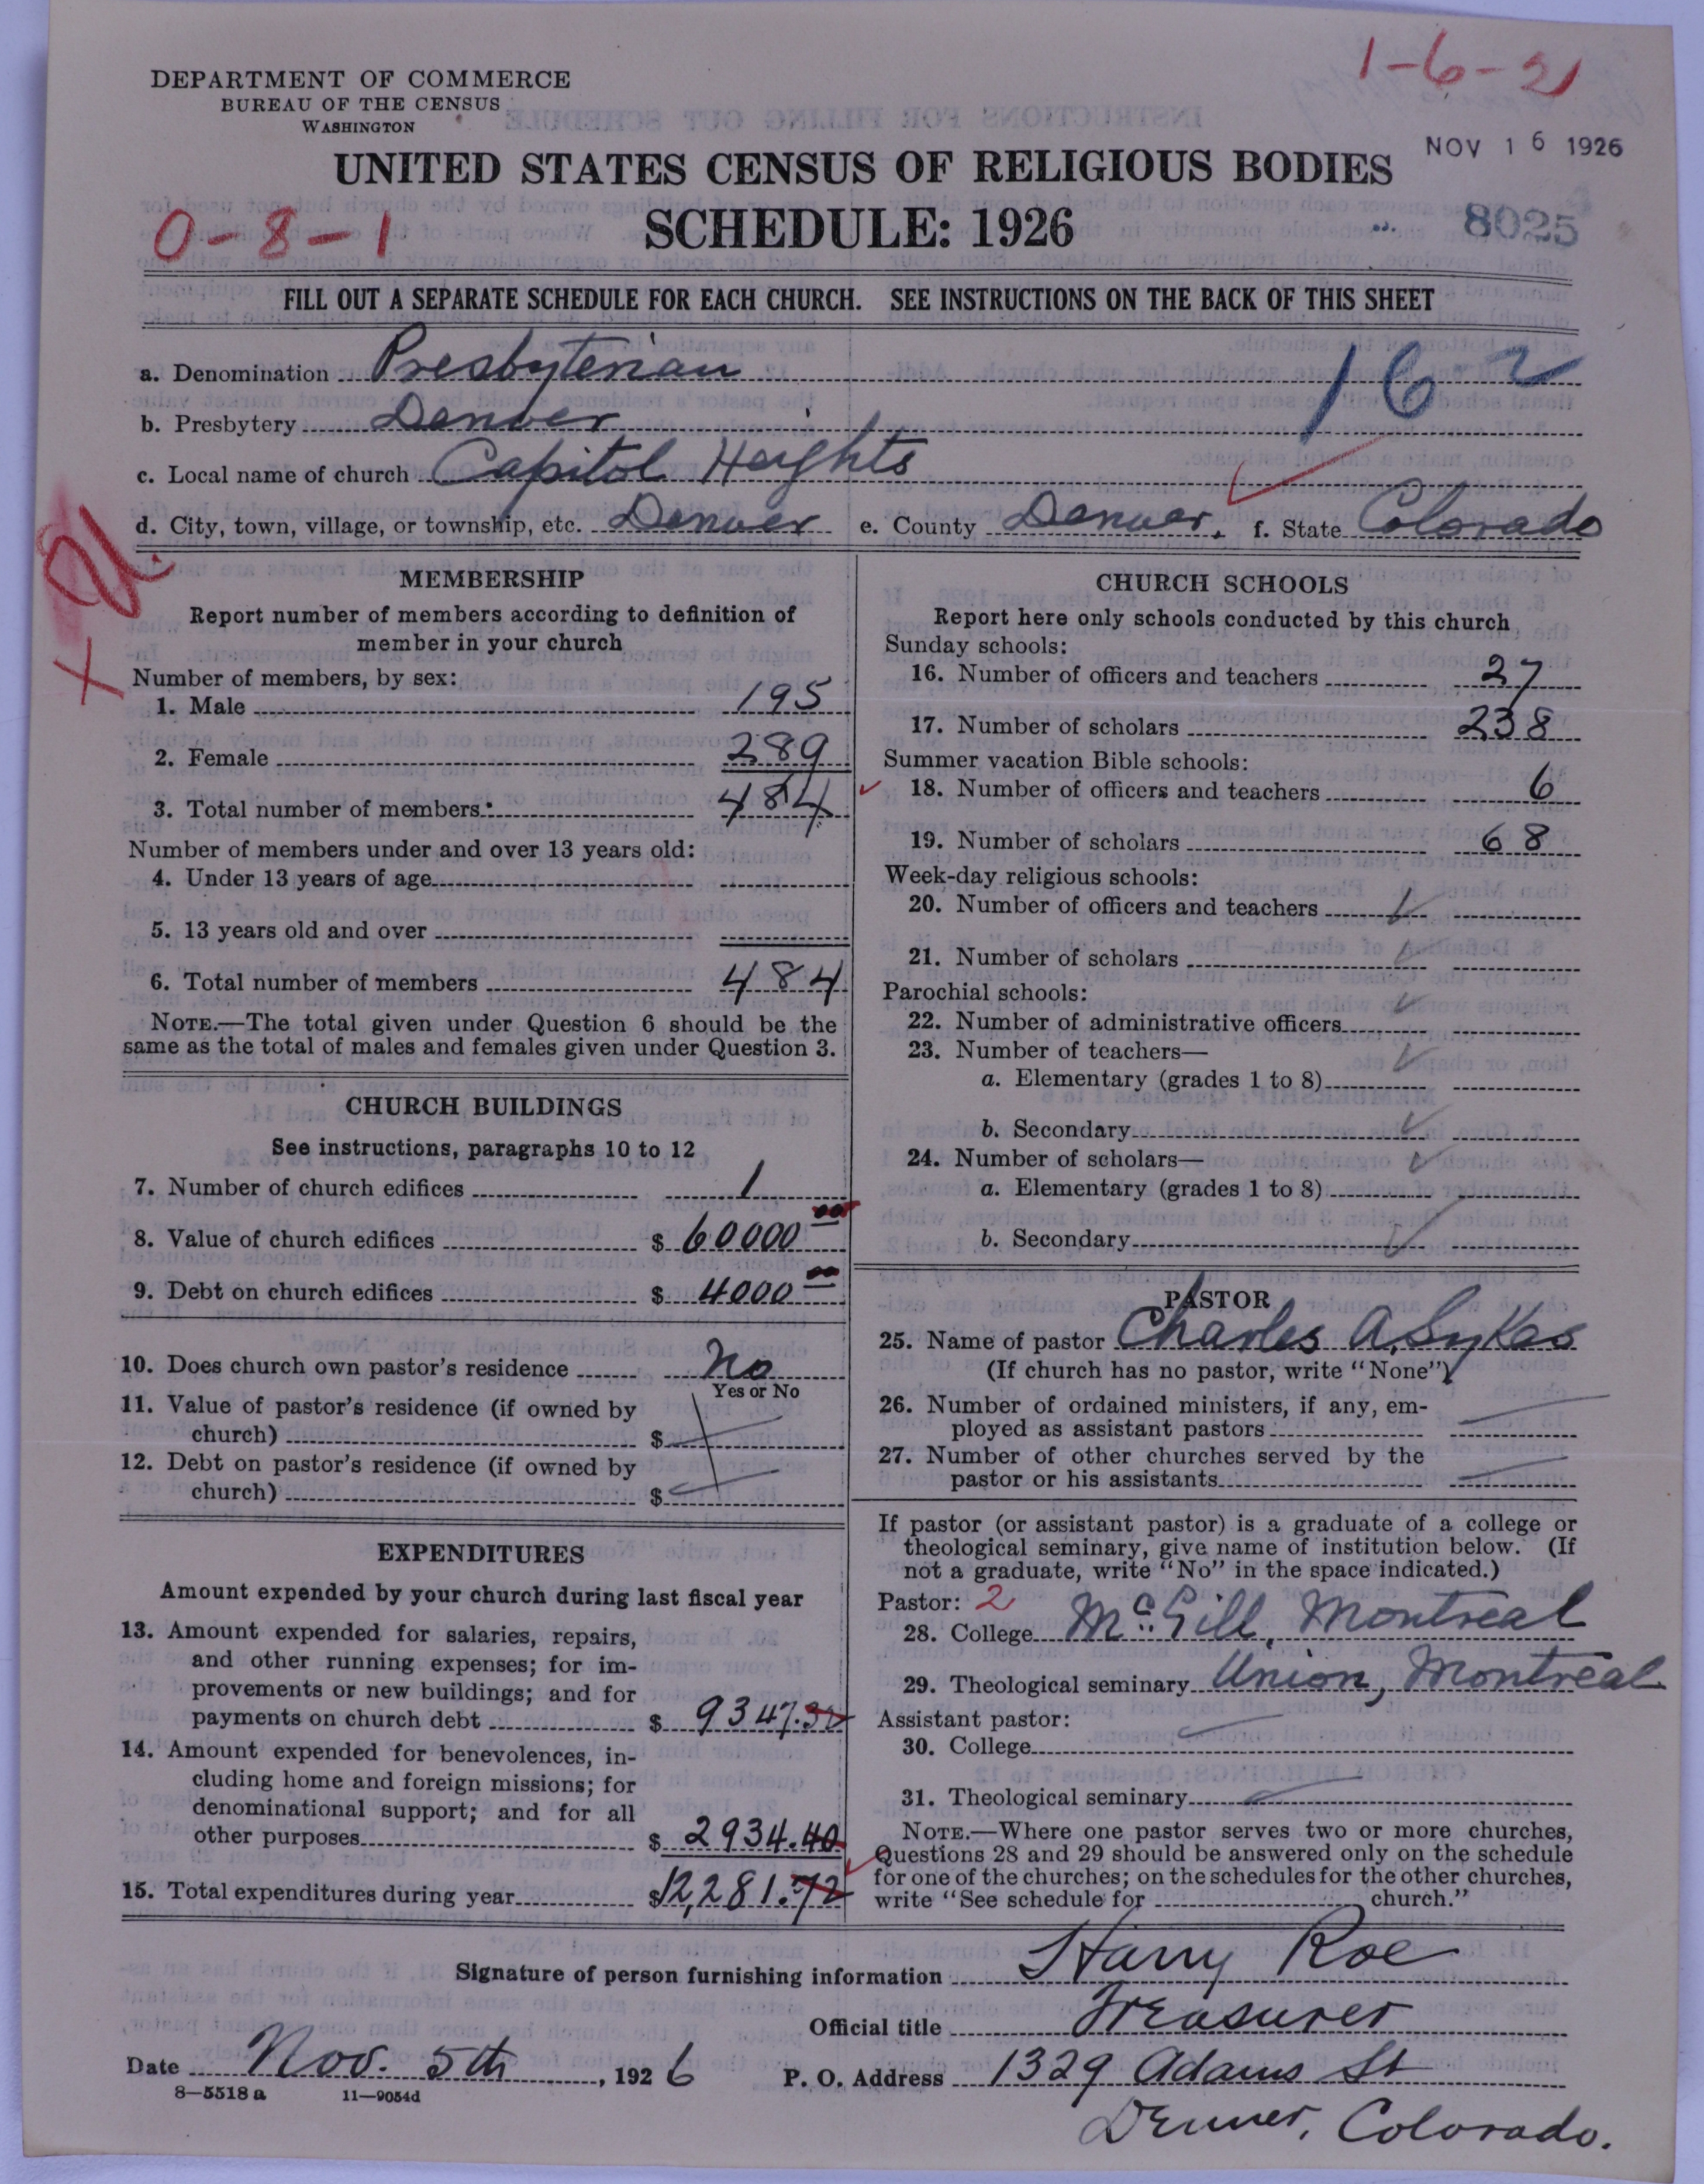 1-6-21
DEPARTMENT OF COMMERCE
BUREAU OF THE CENSUS
WASHINGTON
NOV 16 1926
UNITED STATES CENSUS OF RELIGIOUS BODIES
0-8-1
SCHEDULE: 1926
8025
FILL OUT A SEPARATE SCHEDULE FOR EACH CHURCH. SEE INSTRUCTIONS ON THE BACK OF THIS SHEET
162
a. Denomination Presbyterian
b. Presbytery Denver
c. Local name of church Capitol Heights
d. City, town, village, or township, etc. Denver e. County Denver. f. State Colorado
MEMBERSHIP
Report number of members according to definition of
member in your church
Number of members, by sex:
1. Male 195
2. Female 289
3. Total number of members: 484
Number of members under and over 13 years old:
4. Under 13 years of age
5. 13 years old and over
6. Total number of members 484
NOTE.—The total given under Question 6 should be the
same as the total of males and females given under Question 3.
CHURCH BUILDINGS
See instructions, paragraphs 10 to 12
7. Number of church edifices 1
8. Value of church edifices $ 60000 00
9. Debt on church edifices $ 4000 00
10. Does church own pastor's residence No
Yes or No
11. Value of pastor's residence (if owned by
church) $
12. Debt on pastor's residence (if owned by
church) $
EXPENDITURES
Amount expended by your church during last fiscal year
13. Amount expended for salaries, repairs,
and other running expenses; for im-
provements or new buildings; and for
payments on church debt $ 9347.32
14. Amount expended for benevolences, in-
cluding home and foreign missions; for
denominational support; and for all
other purposes $ 2934.40
15. Total expenditures during year $12,281.72
CHURCH SCHOOLS
Report here only schools conducted by this church
Sunday schools:
16. Number of officers and teachers 27
17. Number of scholars 238
Summer vacation Bible schools:
18. Number of officers and teachers 6
19. Number of scholars 68
Week-day religious schools:
20. Number of officers and teachers
21. Number of scholars
Parochial schools:
22. Number of administrative officers
23. Number of teachers—
a. Elementary (grades 1 to 8)
b. Secondary
24. Number of scholars—
a. Elementary (grades 1 to 8)
b. Secondary
PASTOR
25. Name of pastor Charles A. Sykes
(If church has no pastor, write "None")
26. Number of ordained ministers, if any, em-
ployed as assistant pastors
27. Number of other churches served by the
pastor or his assistants
If pastor (or assistant pastor) is a graduate of a college or
theological seminary, give name of institution below. (If
not a graduate, write "No" in the space indicated.)
Pastor: 2
28. College McGill, Montreal
29. Theological seminary Union, Montreal
Assistant pastor:
30. College
31. Theological seminary
NOTE.—Where one pastor serves two or more churches,
Questions 28 and 29 should be answered only on the schedule
for one of the churches; on the schedules for the other churches,
write "See schedule for church."
Signature of person furnishing information Harry Roe
Official title Treasurer
Date Nov. 5th, 1926 P. O. Address 1329 Adams St
8—5518 a 11—9054d
Denver, Colorado.